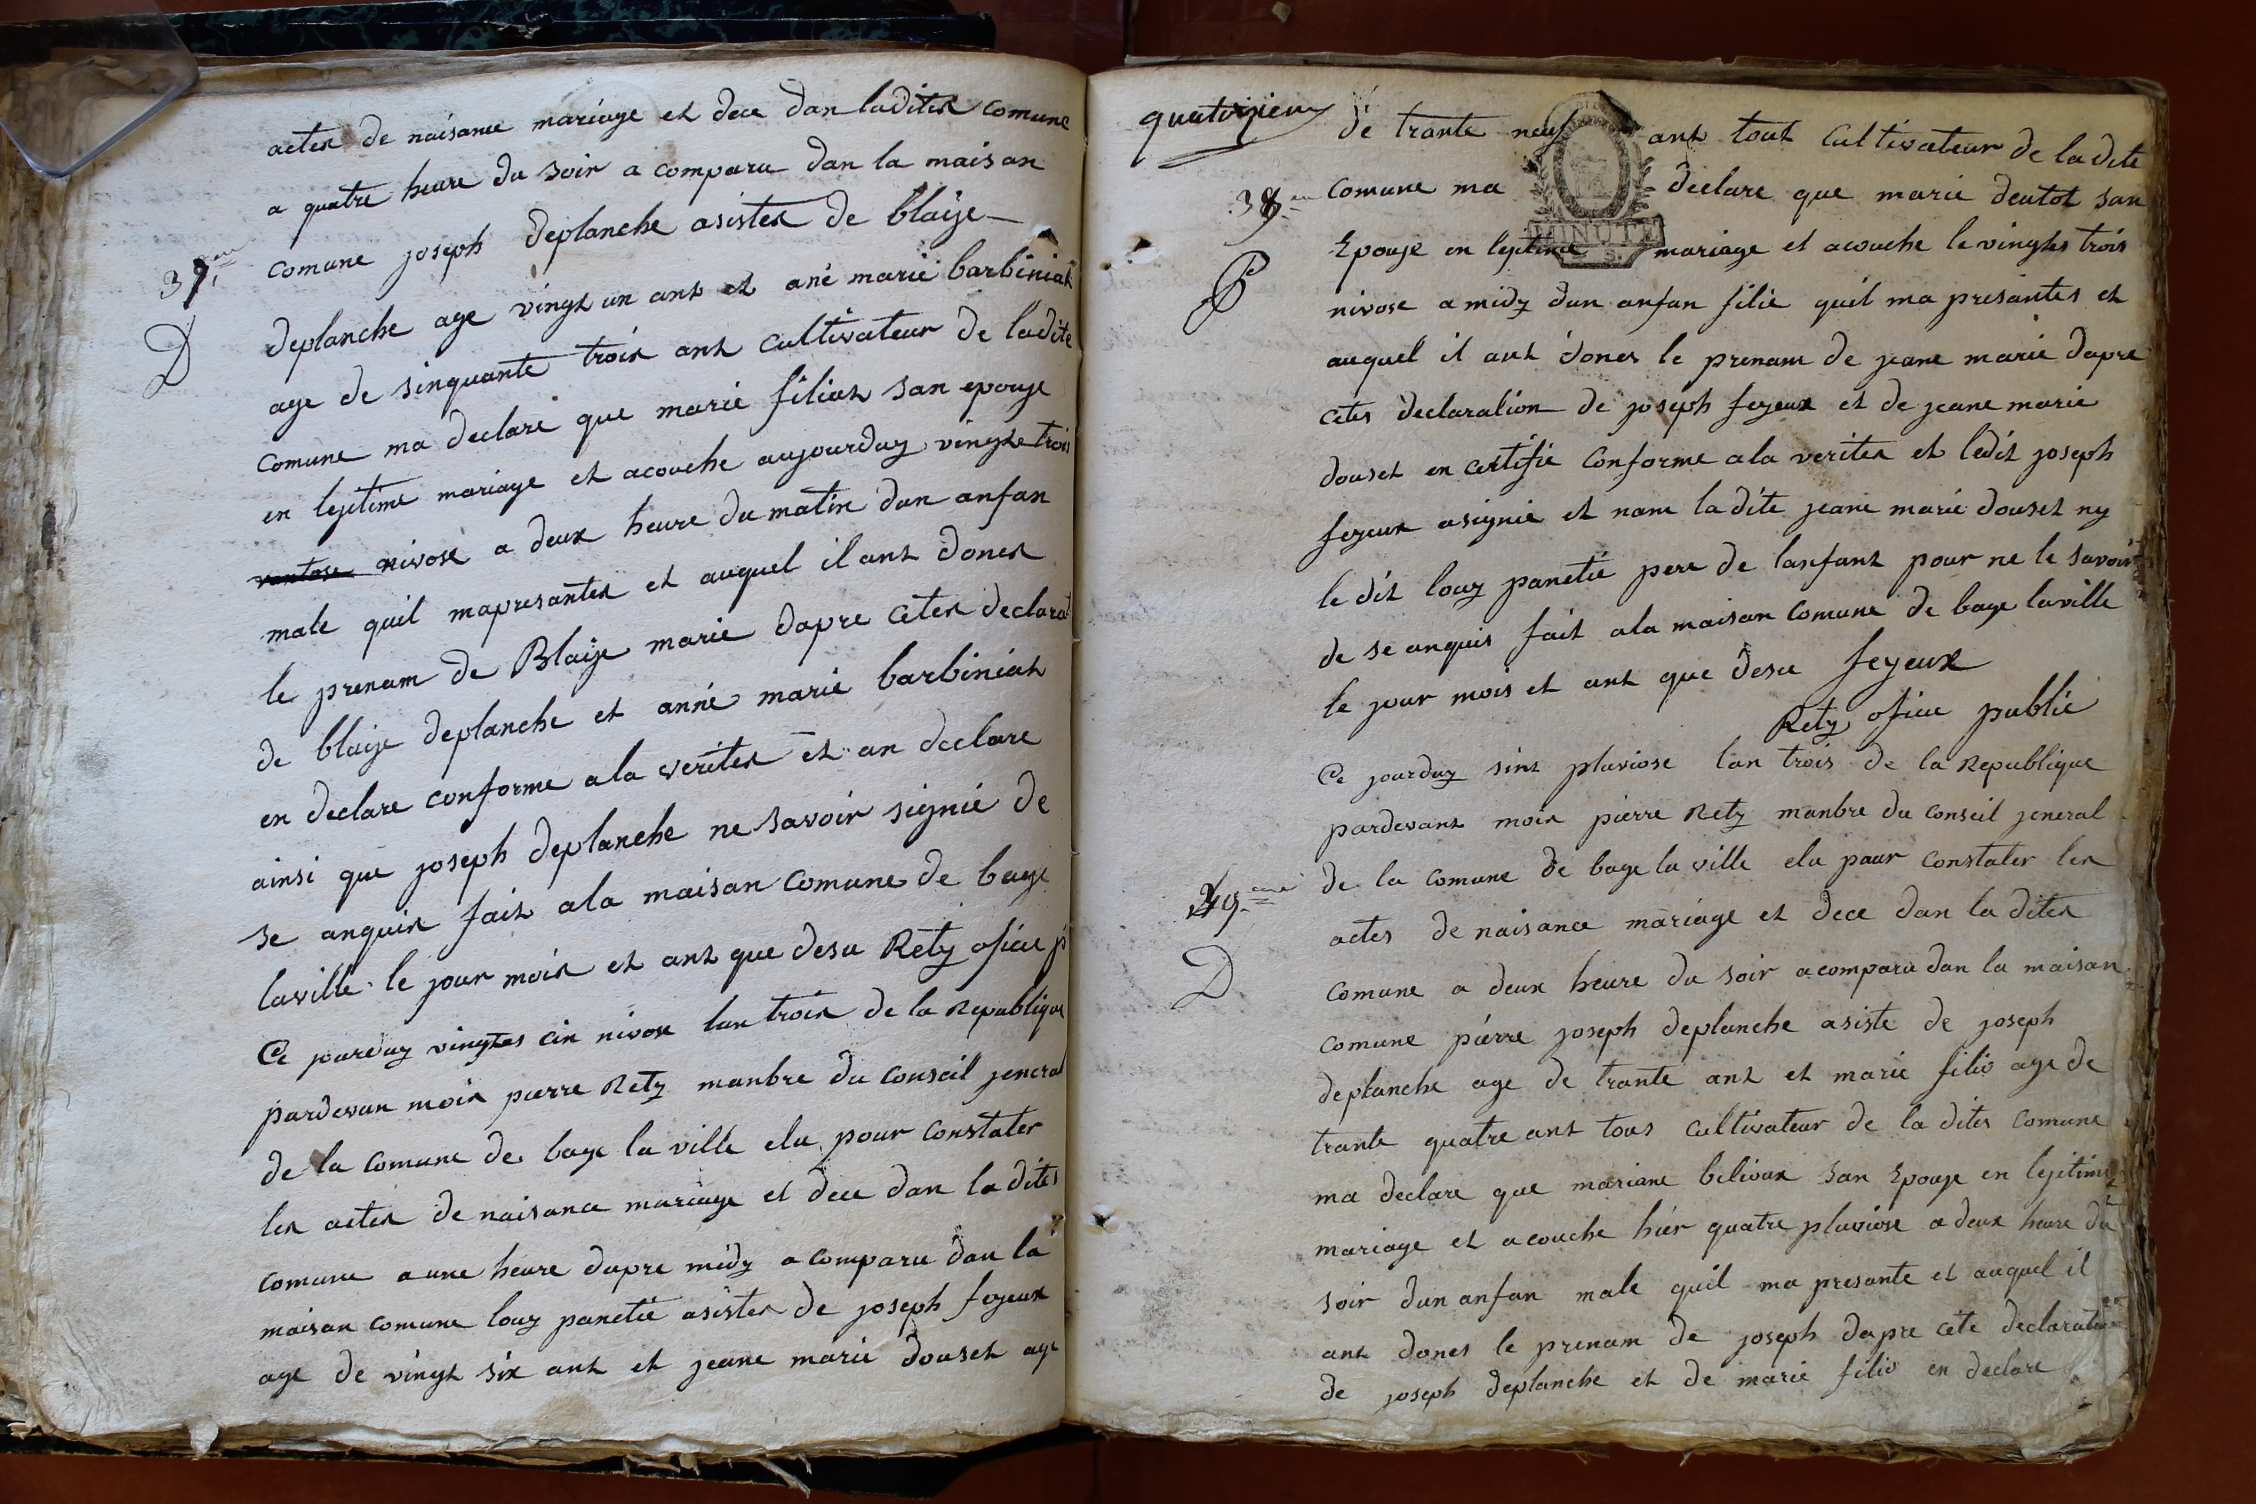 actes de naisance mariage et dece dan ladites comune
a quatre heure du soir a comparu dan la maison
comune joseph deplanche asistes de blaise
37.eme
deplanche age vingt un ant et ane marie barbiniat
D
age de sinquante trois ant cultivateur de ladite
comune ma declare que marie filiat san epouse
en lejitime mariage et acouche aujourduy vingtes trois
vantose nivose a deux heure du matin dun anfan
male quil mapresantes et auquel il ant dones
le prenam de Blaise marie dapre cetes declarat
de blaise deplanche et anné marie barbiniat
en declare conforme ala verites et an declare
ainsi que joseph deplanche ne savoir signié de
se anquis fait ala maisan comune de bage
laville le jour mois et ant que desu Rety ofice p
Ce jourduy vingtes cin nivose lan trois de la Republique
pardevan mois pierre Rety manbre du conseil jeneral
de la comune de bage la ville elu pour constater
les actes de naisance mariage et dece dan la dites
comune a une heure dapre midy a comparu dan la
maisan comune louy panetié asistes de joseph feyeux
age de vingt six ant et jeane marie douset age
quatorzieme
de trante neuf ant tout cultivateur de la dite
38.eme
comune ma declare que marie deutot san
MINUTE
Epouse en lejitime mariage et acouche le vingtes trois
nivose a midy dun anfan filie quil ma presantes et
auquel il ant dones le prenam de jeane marie dapre
cetes declaration de joseph feyeux et de jeane marie
douset en certifie conforme ala verites et ledit joseph
feyeux asignie et nam la dite jeane marie douset ny
le dit louy panetié pere de lanfant pour ne le savoir
de se anquis fait ala maisan comune de bage laville
le jour mois et ant que desu feyeux
Rety ofice public
Ce jourduy sint pluviose lan trois de la Republique
pardevant mois pierre Rety manbre du conseil jeneral
de la comune de bage la ville elu paur constater les
39.eme
actes de naisance mariage et dece dan la dites
D
comune a deux heure du soir acomparu dan la maisan
comune piérre joseph deplanche asiste de joseph
deplanche age de trante ant et marie filio age de
trante quatre ant tous cultivateur de la dites comune
ma declare que mariane belivax san Epouse en lejitime
mariage et acouche hiér quatre pluviose a deux heure du
soir dun anfan male quil ma presante et auquel il
ant dones le prenam de joseph dapre cete declaration
de joseph deplanche et de marie filio en declare